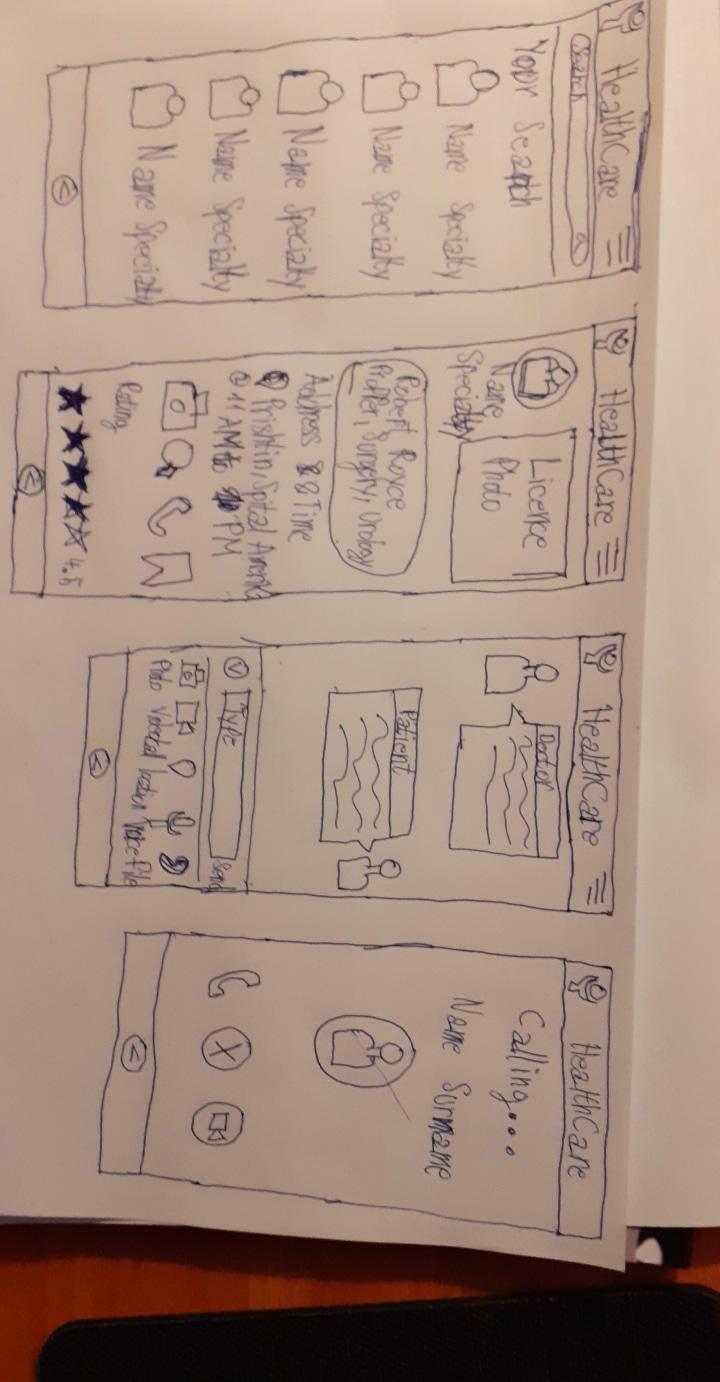 HealthCare
Search
Your Search
Name Specialty
Name Specialty
Name Specialty
Name Specialty
Name Specialty
HealthCare
Licence
Photo
Name
Specialty
Robert Royce
Surgery, Urology
Address & Time
Prishtin, Spital Amerik
11 AM to PM
Rating
4.5
HealthCare
Doctor
Patient
Type
Send
Photo Videocal location Voice File
HealthCare
Calling...
Name Surname